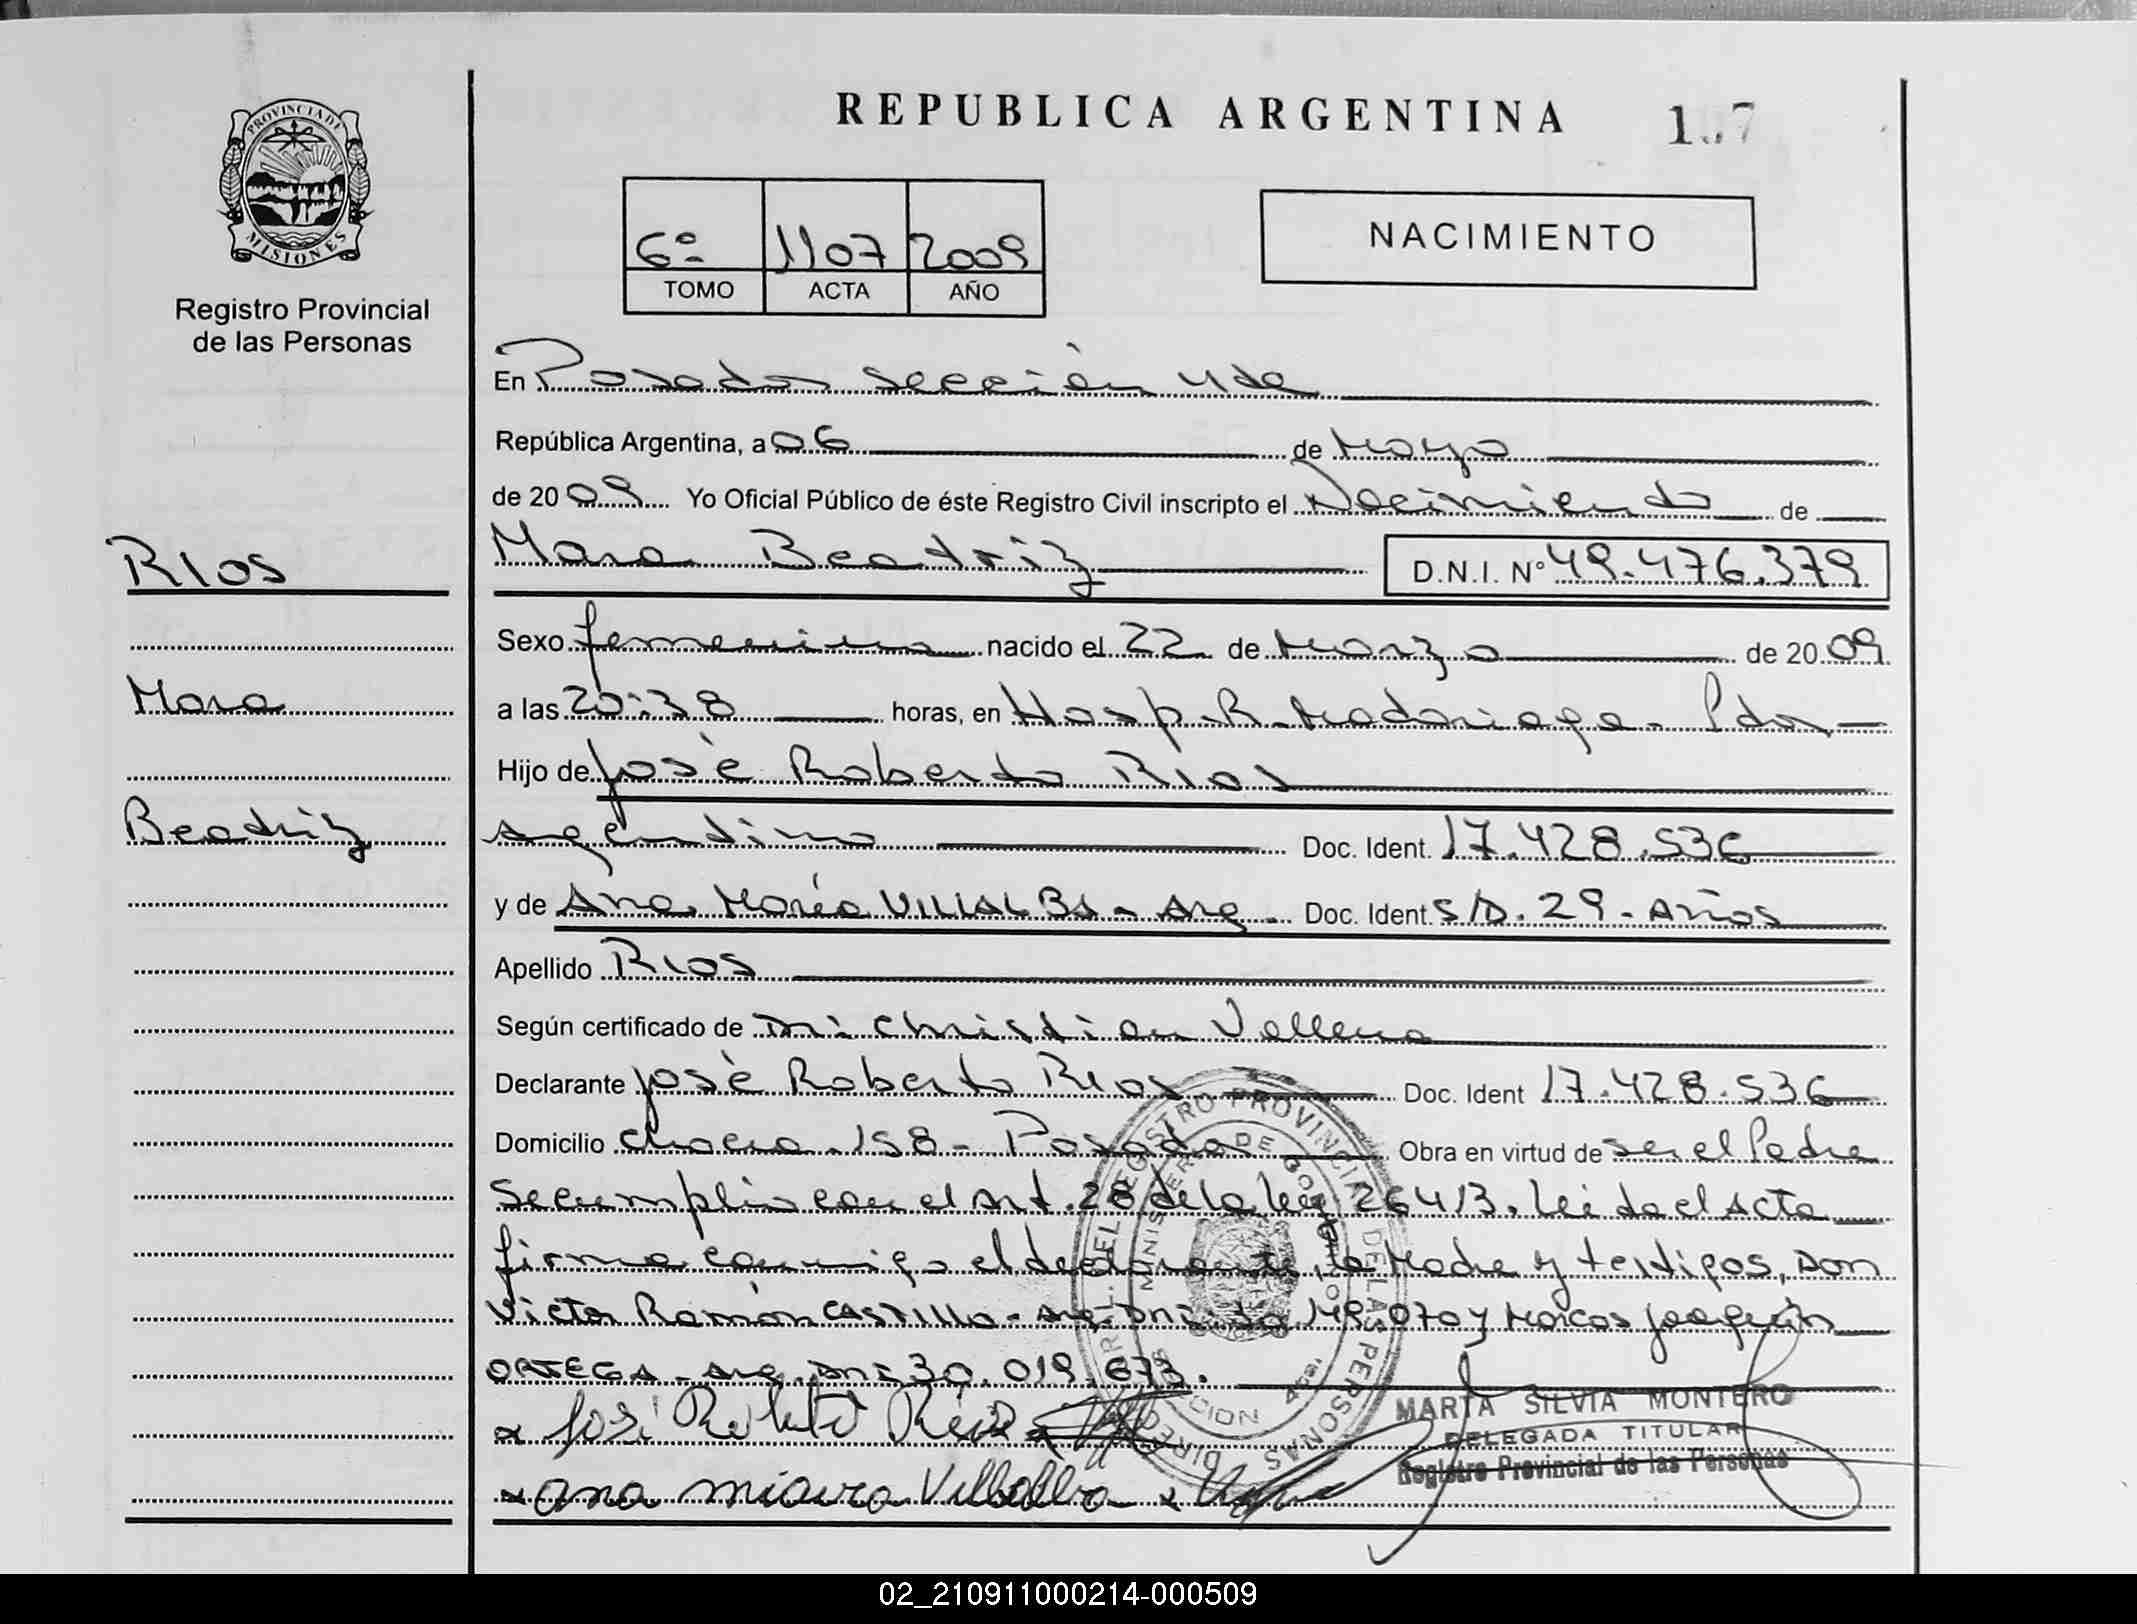 REPUBLICA ARGENTINA
PROVINCIA DE
MISIONES
Registro Provincial
de las Personas
6º 1107 2009
TOMO ACTA AÑO
NACIMIENTO
En Posadas sección 4ta
República Argentina, a 06 de Mayo
de 2009 Yo Oficial Público de éste Registro Civil inscripto el Nacimiento de
RIOS
Mara Beatriz D.N.I. Nº 49.476.379
Sexo femenino nacido el 22 de Marzo de 2009
Mara
a las 20:38 horas, en Hosp. R. Madariaga - Pdas
Hijo de José Roberto Rios
Beatriz
argentino Doc. Ident. 17.428.536
y de Ana María VILLALBA - Arg. Doc. Ident. S/D. 29 - Años
Apellido Rios
Según certificado de Christian Vallena
Declarante José Roberto Rios Doc. Ident 17.428.536
Domicilio chacra 158 - Posadas Obra en virtud de ser el Padre
Se cumplio con el Art. 28 de la ley 26413. Leida el Acta
firma conmigo el declarante, la Madre y testigos, Don
Victor Ramón CASTILLO - Arg. DNI 070 y Marcos Joaquín
ORTEGA - Arg. DNI 30.019.673.
José Roberto Rios
MARTA SILVIA MONTERO
DELEGADA TITULAR
Registro Provincial de las Personas
ana Villalba
02_210911000214-000509